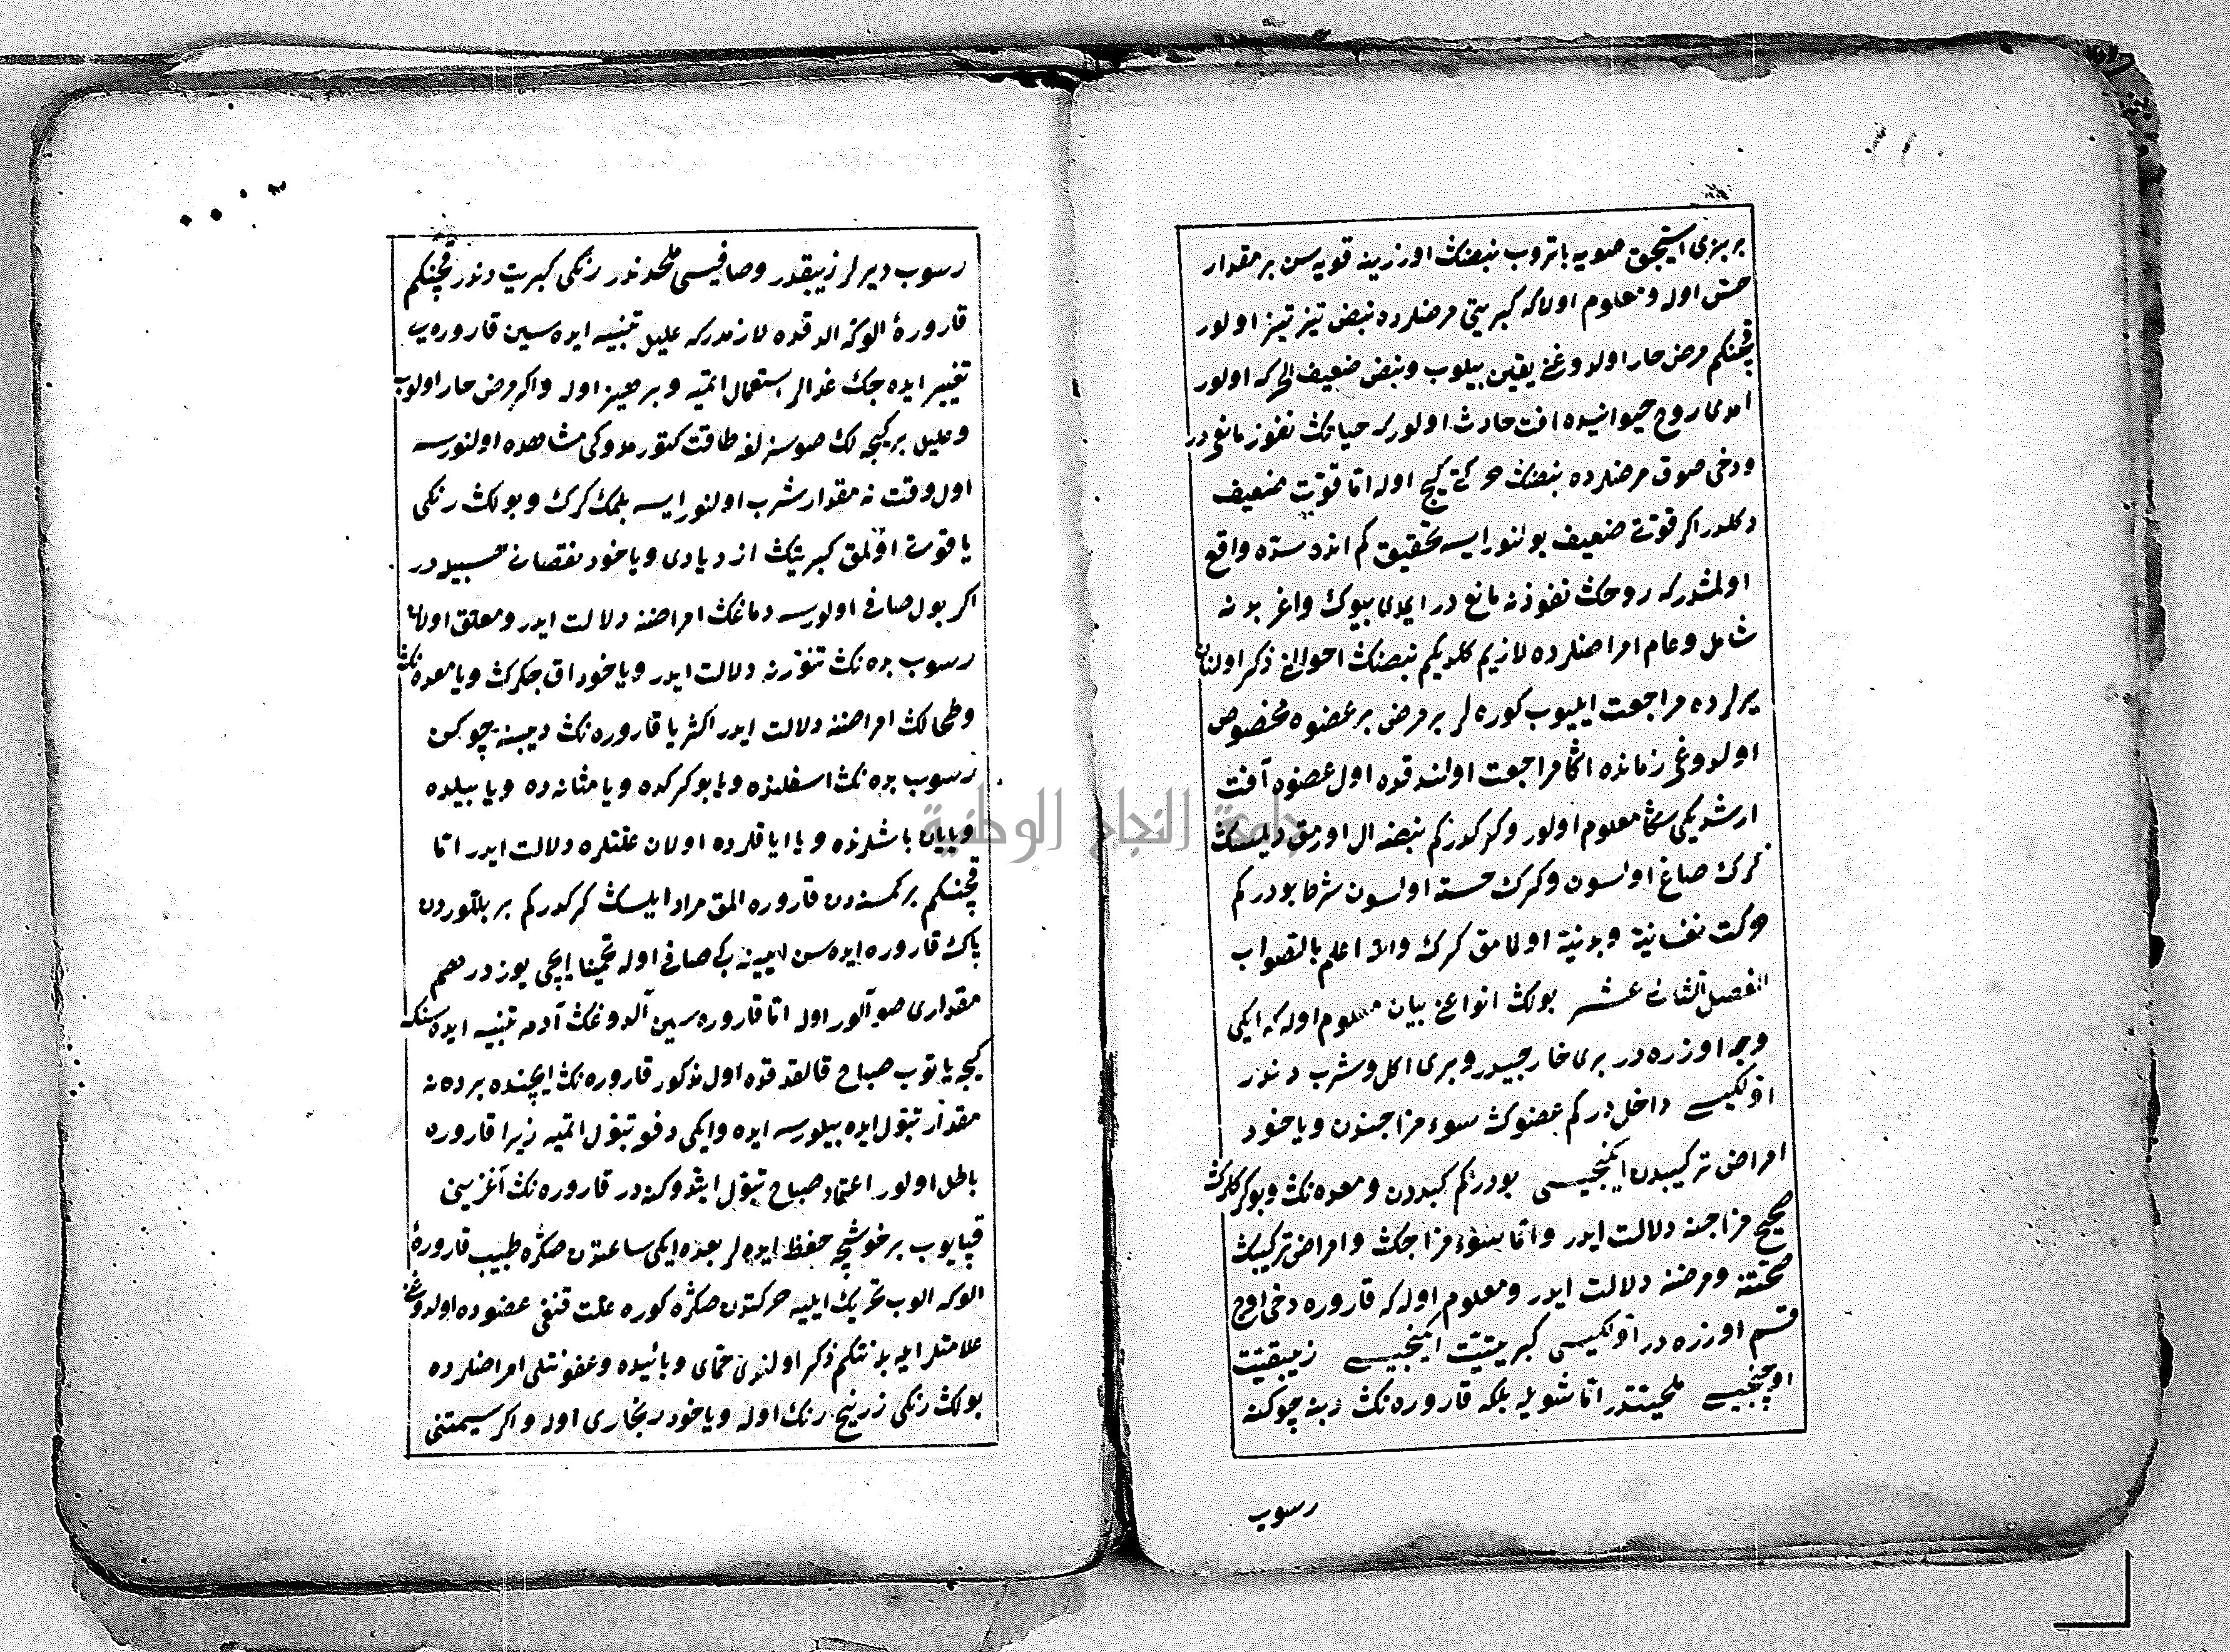 بر بزی استیجق صویه باتروب نبضنك اوزرینه قویه سن بر مقدار
حس اوله و معلوم اولاكه كبریتی مرضلرده نبض تیز تیز اولور
قچنكم مرض حار اولدوغی یقین بیلوب و نبض ضعیف اولور
امدی روح حیوانیده افت حادث اولور كه حیاتك نفوز مانع در
ودخی صوق مرضلرده نبضك حركتی كیج اوله اما قوتی ضعیف
دكلدر اكر قوتی ضعیف بولنور ایسه تحقیق كم انده سده واقع
اولمشدر كه روحك نفوذنه مانع در ایمدی بیوك واغر بدنه
شامل وعام امراضلرده لازیم كلدیكم نبضنك احوالی ذكر اولنان
یرلرده مراجعت ایلیوب كوره لر بر مرض بر عضوه مخصوص
اولدوغی زمانده اكا مراجعت اولندقده اول عضوه آفت
ارشدیكی سكا معلوم اولور وكركدركم نبضه ال اورمق دیلسك
كرك صاغ اولسون وكرك خسته اولسون شرط بودركم
حركت نفسانیة وبدنیة اولمامق كرك والله اعلم بالصواب
الفصل الثانی عشر بولك انواعی بیان معلوم اوله كه ایكی
وجه اوزره در بری خارجیدر وبری اكل وشرب دندر
اولكیسی داخل در كم عضوك سوء مزاجندن ویاخود
امراض تركیبدن ایكنجیسی بودركم كبددن ومعده نك وبوكركلرك
صحیح مزاجنه دلالت ایدر واما سوء مزاجك وامراض تركیبك
صحتنه ومرضنه دلالت ایدر ومعلوم اوله كه قاروره دخی اوچ
قسم اوزره در اولكیسی كبریتیت ایكنجیسی زیبقیت
اوچنجیسی ملحیتدر اما شویله بلكه قاروره نك دبنه چوكنه
رسوب
رسوب دیرلر زیبقدر وصافیسی ملحدندر رنكی كبریت دندر قچنكم
قاروره الوكه الدقده لازمدركه علیل تنبیه ایده سین قاروره یی
تغییر ایده جك غدالر استعمال اتمیه وبرهیز اوله واكر مرض حار اولوب
وعلیل بر كیجه لك صوسزلغه طاقت كتورمدوكی مشاهده اولنورسه
اول وقت نه مقدار شرب اولنور ایسه بلمك كرك وبولك رنكی
یاقوتی اولمق كبریتك ازدیادی ویاخود نقصانی حسبیدر
اكر بول صافی اولورسه دماغك امراضنه دلالت ایدر ومعلق اولان
رسوب بدنك تنورنه دلالت ایدر ویاخود اق جكرك ویا معده نك
وطحالك امراضنه دلالت ایدر اكثریا قاروره نك دیبنه چوكن
رسوب بدنك اسفلنده ویا بوكركده ویا مثانه ده ویا بیلده
ویا یان باشلرنده ویا ایاقلرده اولان علتلره دلالت ایدر اما
قچنكم بر كمسه دن قاروره المق مراد ایلسك كركدركم بر بللوردن
پاك قاروره ایده سن ایینه كبی صافی اوله تخمینا ایچی یوز درهم
مقداری صو آلور اوله اما قاروره سین آلدوغك آدمه تنبیه ایده سنكه
كیجه یاتوب صباح قالقدقده اول مذكور قاروره نك ایچنده بردن نه
مقدار تبول ایده بیلورسه ایده وایكی دفعه تبول اتمیه زیرا قاروره
باطل اولور اعتماد صباح تبول ایتدوكنه در قاروره نك آغزینی
قپایوب بر خوشجه حفظ ایده لر بعده ایكی ساعتدن صكره طبیب قاروره
الوكه الوب تحریك ایلیه حركتدن صكره كوره علت قنغی عضوده اولدوغی
علامتلر ایله بلنتكم ذكر اولندی حمای وبائیده وعفونتلی امراضلرده
بولك رنكی زرنیخ رنك اوله ویاخود زنجاری اوله واكر سیمتنی